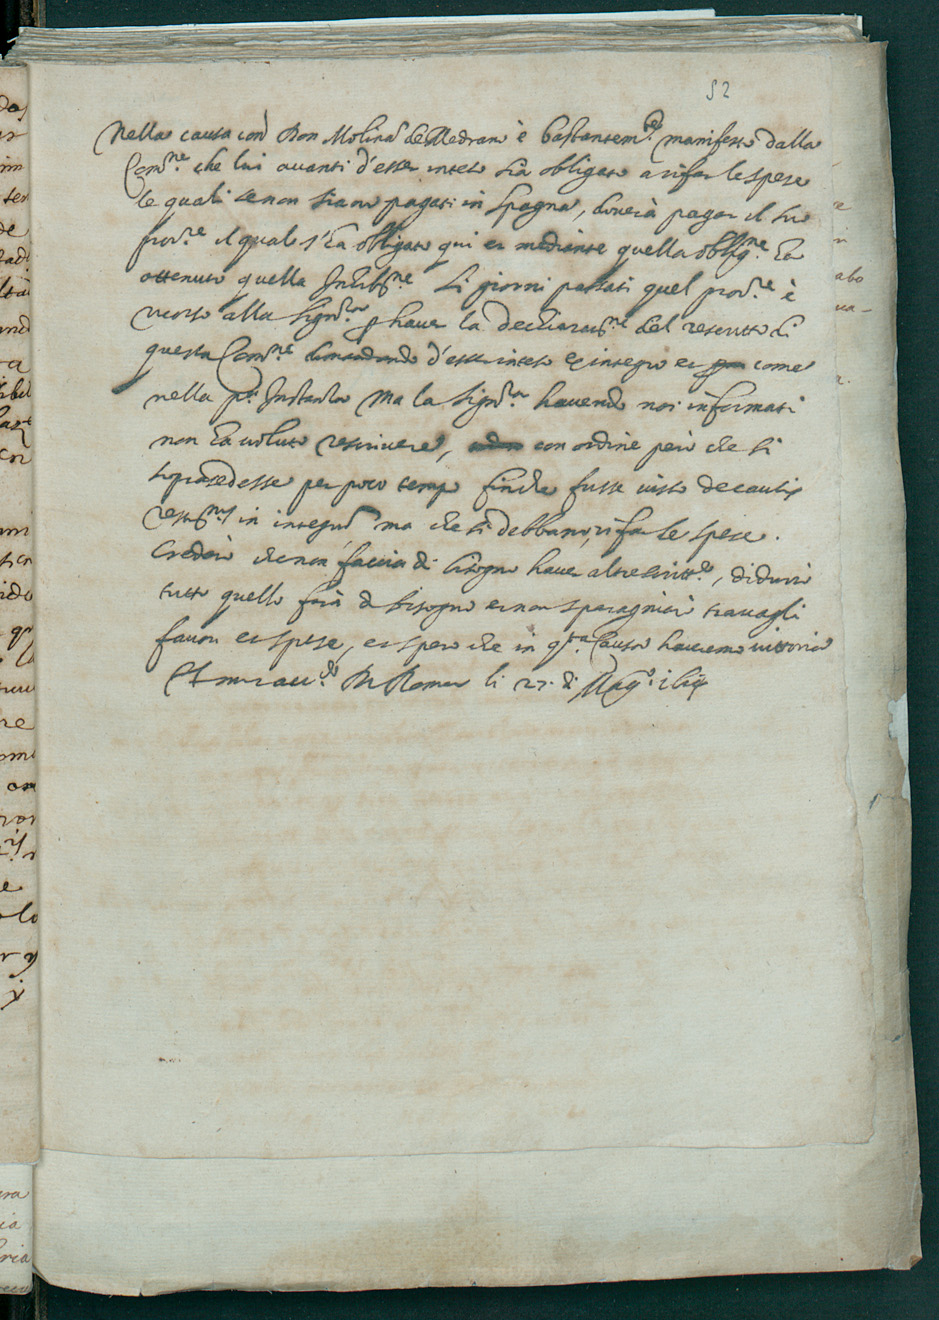 52
Nella causa con Don Molina de Medrano è bastantem.te manifesto dalla
Com.ne che lui avanti d'esser inteso sia obligato a rifar le spese
le quali se non siano pagati in Spagna, doverà pagar il suo
proc.re il qual s'ha obligato qui et mediante quella oblig.ne ha
ottenuto quella Inhib.ne Li giorni passati quel proc.re è
ricorso alla Sign.ra p haver la dechiarat.ne del rescritto di
questa Com.ne domandando d'esser inteso ex integro et come
nella p.a Instantia Ma la Sign.ra havendo noi informati
non ha voluto rescrivere, con ordine però che si
soprasedesse per poco tempo finche fusse visto de causis
rest.nis in integrū ma che si debbano rifar le spese.
Credo che non faccia di bisogno haver altre scritt.e, di dinari
tutto quello farà di bisogno et non sparagnieri travagli
favori et spese, et spero che in q.sta causa haveremo vittoria
Di Roma li 27. di Mag.o